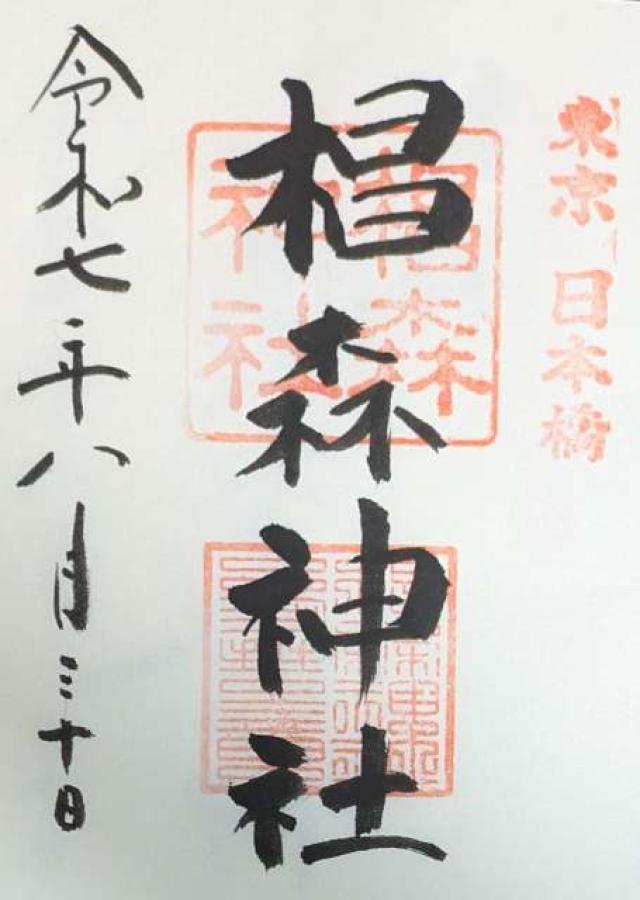 東京 日本橋
椙森神社
椙森
神社
令和七年八月三十日